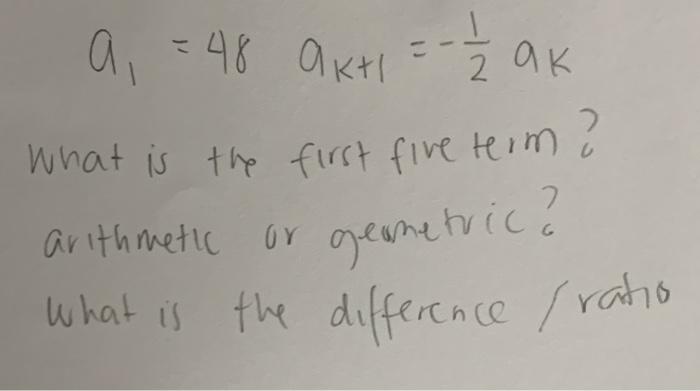 a₁ = 48 aₖ₊₁ = -1/2 aₖ
What is the first five term?
arithmetic or geometric?
What is the difference / ratio